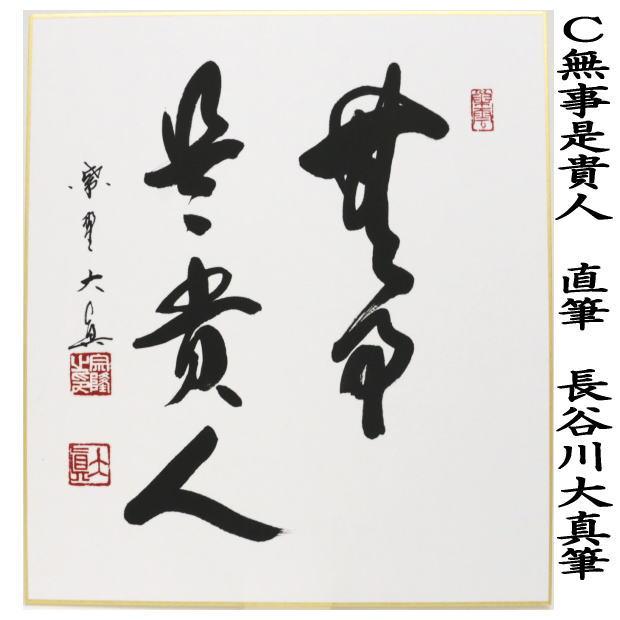 C無事是貴人　直筆　長谷川大真筆
無事
是貴人
紫野大真